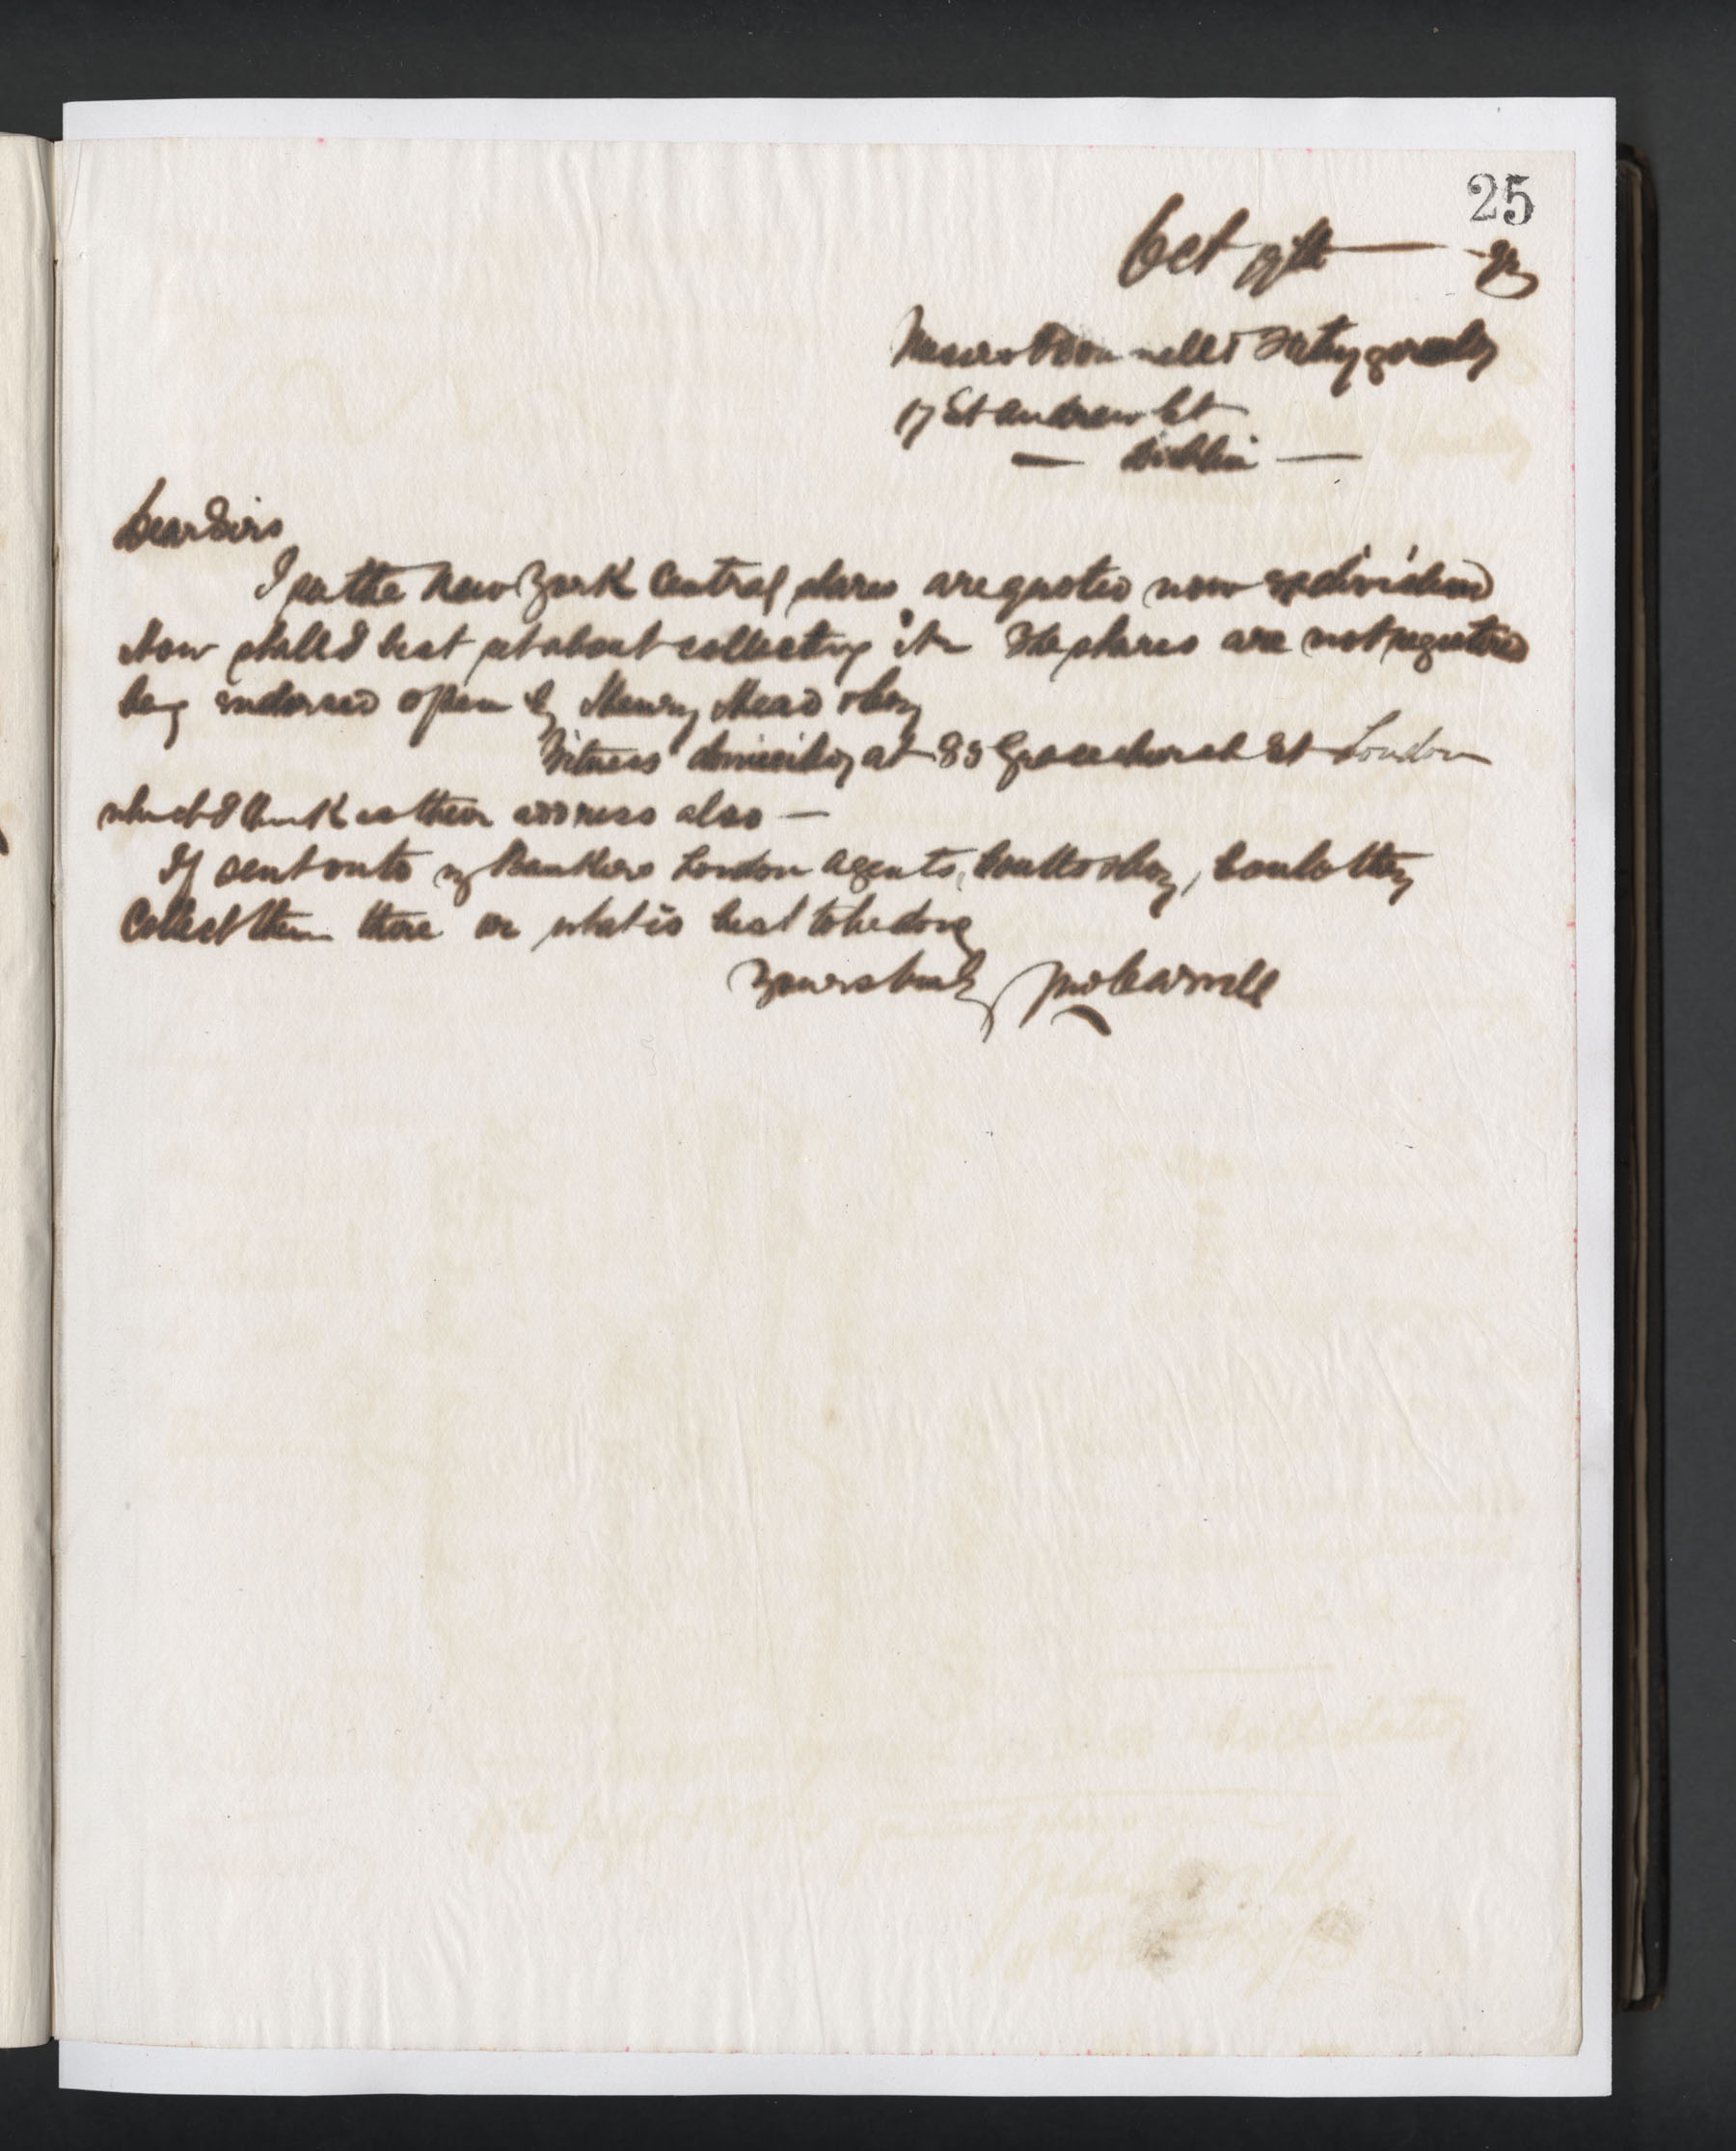 25
Oct 19th — 92
Messrs O'Donnell & Fitzgerald
17 St Andrew St
— Dublin —
Dear Sirs
I see the New York Central shares are quoted now exdividend
How shall I best set about collecting it The shares are not registered
being endorsed open by Henry Head & Coy
Witness at 83 Gracechurch St London
which I think is their address also —
If sent on to my Bankers London agents, Coutts & Coy, could they
Collect them there or what is best to be done
Yours truly Jno Carroll